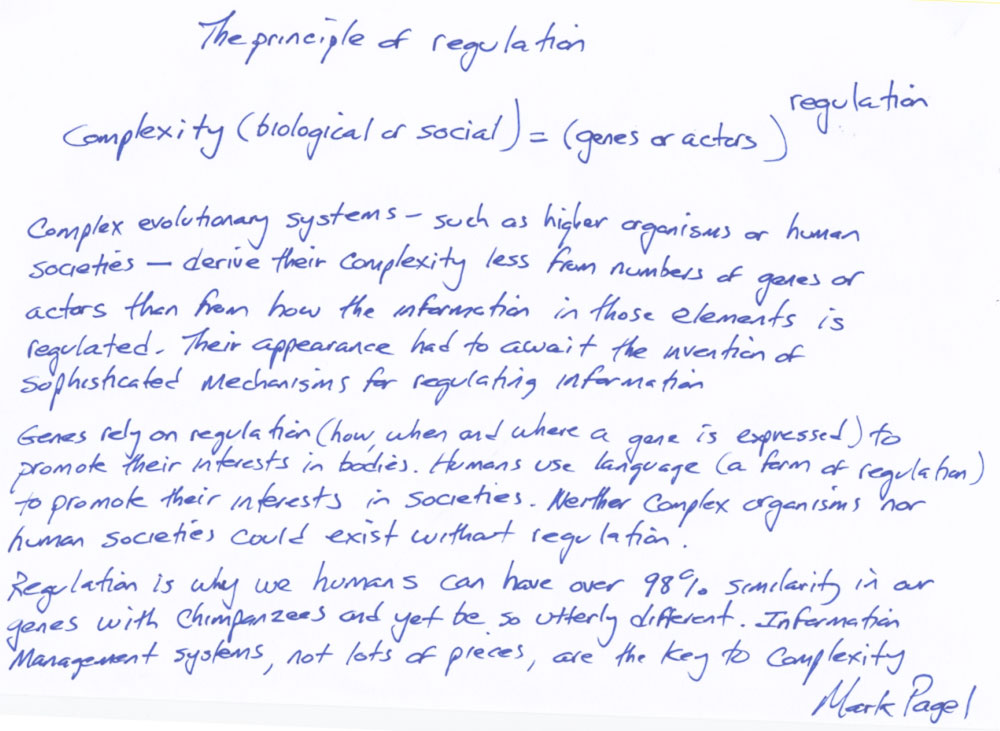 The principle of regulation
regulation
Complexity (biological or social) = (genes or actors)
Complex evolutionary systems – such as higher organisms or human
societies – derive their complexity less from numbers of genes or
actors than from how the information in those elements is
regulated. Their appearance had to await the invention of
sophisticated mechanisms for regulating information
Genes rely on regulation (how, when and where a gene is expressed) to
promote their interests in bodies. Humans use language (a form of regulation)
to promote their interests in societies. Neither complex organisms nor
human societies could exist without regulation.
Regulation is why we humans can have over 98% similarity in our
genes with Chimpanzees and yet be so utterly different. Information
Management systems, not lots of pieces, are the key to complexity
Mark Pagel